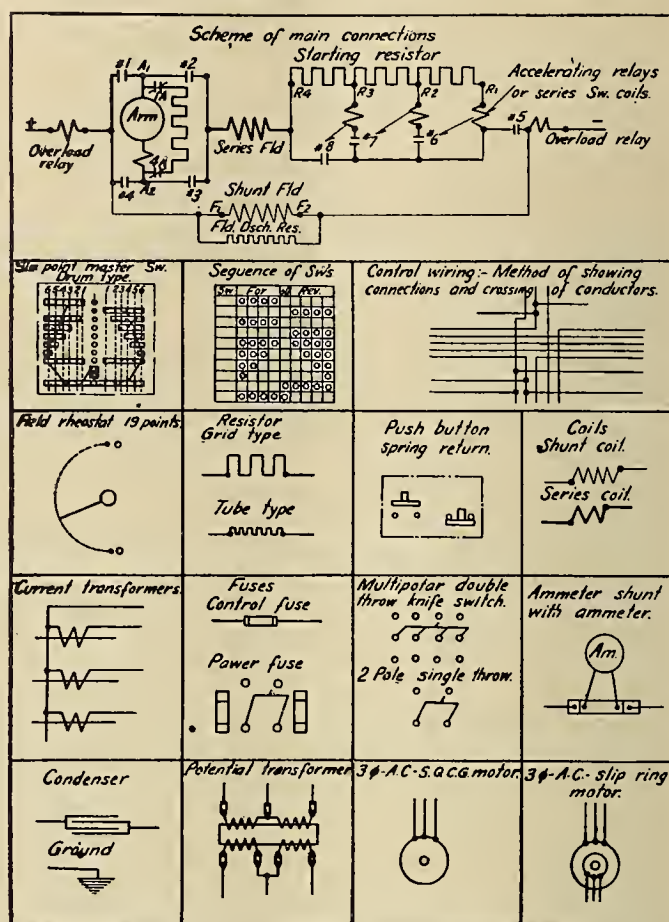 Scheme of main connections
Starting resistor
#1 A1 #2
1A
Arm
4A
#4 A2 #3
+
Overload relay
Series Fld
R4 R3 R2 R1
Accelerating relays
or series Sw. coils.
#8 #7 #6 #5
-
Overload relay
Shunt Fld
F1 F2
Fld. Dsch. Res.
Six point master Sw.
Drum type.
654321 123456
Sequence of Sw's
Sw. For. Rev.
Control wiring:- Method of showing
connections and crossing of conductors.
Field rheostat 19 points.
Resistor
Grid type
Tube type
Push button
spring return.
Coils
Shunt coil.
Series coil.
Current transformers.
Fuses
Control fuse
Power fuse
Multipolar double
throw knife switch.
2 Pole single throw.
Ammeter shunt
with ammeter.
Am.
Condenser
Ground
Potential transformer
3φ-A.C-S.Q.C.G. motor.
3φ-A.C.- slip ring
motor.